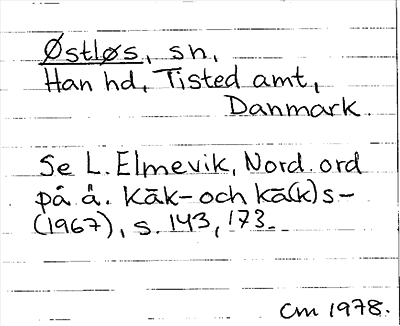 Østløs, sn,
Han hd, Tisted amt,
Danmark.
Se L. Elmevik, Nord. ord
på å. Kāk- och kā(k)s-
(1967), s. 143, 173.
Cm 1978.